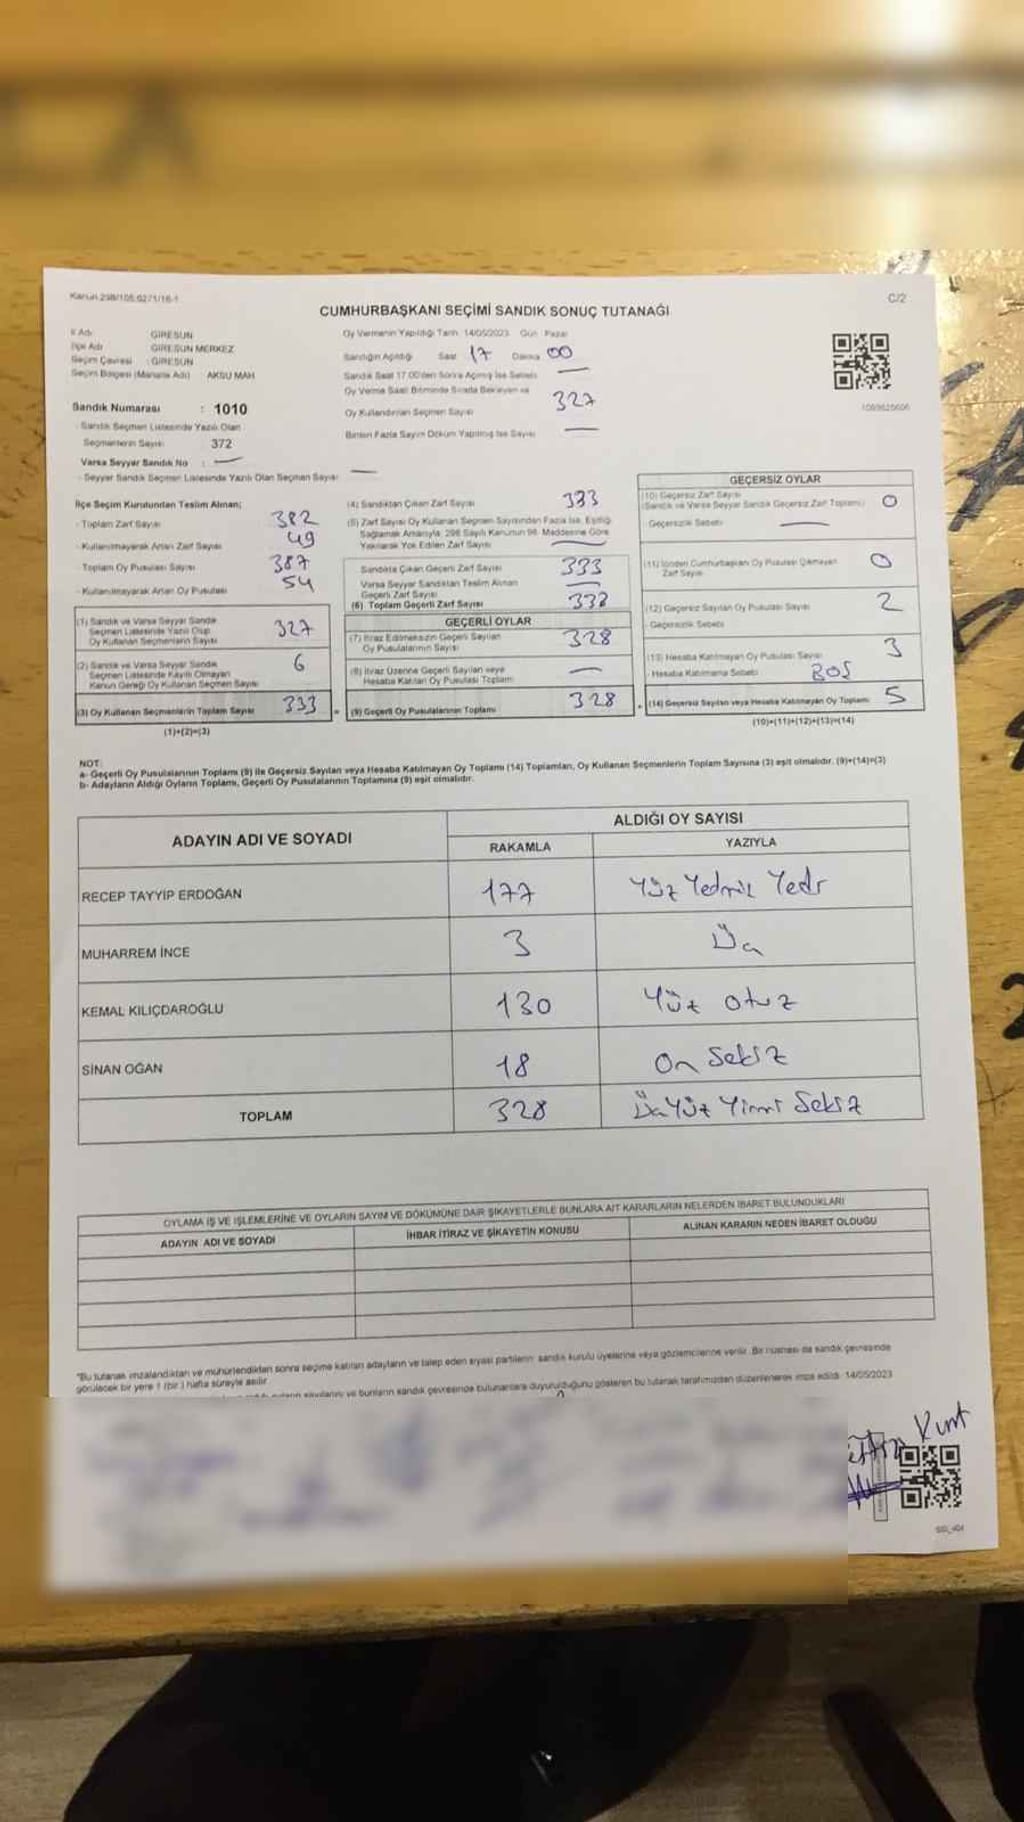 Kanun 298/105:6271/16-1
C/2
CUMHURBAŞKANI SEÇİMİ SANDIK SONUÇ TUTANAĞI
İl Adı : GİRESUN
İlçe Adı : GİRESUN MERKEZ
Seçim Çevresi : GİRESUN
Seçim Bölgesi (Mahalle Adı) AKSU MAH
Sandık Numarası : 1010
- Sandık Seçmen Listesinde Yazılı Olan
Seçmenlerin Sayısı 372
Varsa Seyyar Sandık No : —
- Seyyar Sandık Seçmen Listesinde Yazılı Olan Seçmen Sayısı —
Oy Vermenin Yapıldığı Tarih 14/05/2023 Gün Pazar
Sandığın Açıldığı Saat 17 Dakika 00
Sandık Saat 17.00'den Sonra Açılmış İse Sebebi —
Oy Verme Saati Bitiminde Sırada Bekleyen ve
Oy Kullandırılan Seçmen Sayısı 327
Birden Fazla Sayım Döküm Yapılmış İse Sayısı —
1069620606
İlçe Seçim Kurulundan Teslim Alınan;
- Toplam Zarf Sayısı 382
- Kullanılmayarak Artan Zarf Sayısı 49
- Toplam Oy Pusulası Sayısı 387
- Kullanılmayarak Artan Oy Pusulası 54
(1) Sandık ve Varsa Seyyar Sandık
Seçmen Listesinde Yazılı Olup
Oy Kullanan Seçmenlerin Sayısı 327
(2) Sandık ve Varsa Seyyar Sandık
Seçmen Listesinde Kayıtlı Olmayan
Kanun Gereği Oy Kullanan Seçmen Sayısı 6
(3) Oy Kullanan Seçmenlerin Toplam Sayısı 333 =
(1)+(2)=(3)
(4) Sandıktan Çıkan Zarf Sayısı 333
(5) Zarf Sayısı Oy Kullanan Seçmen Sayısından Fazla İse, Eşitliği
Sağlamak Amacıyla, 298 Sayılı Kanunun 98. Maddesine Göre
Yakılarak Yok Edilen Zarf Sayısı —
Sandıkta Çıkan Geçerli Zarf Sayısı 333
Varsa Seyyar Sandıktan Teslim Alınan
Geçerli Zarf Sayısı —
(6) Toplam Geçerli Zarf Sayısı 333
GEÇERLİ OYLAR
(7) İtiraz Edilmeksizin Geçerli Sayılan
Oy Pusulalarının Sayısı 328
(8) İtiraz Üzerine Geçerli Sayılan veya
Hesaba Katılan Oy Pusulası Toplamı —
(9) Geçerli Oy Pusulalarının Toplamı 328 +
GEÇERSİZ OYLAR
(10) Geçersiz Zarf Sayısı
(Sandık ve Varsa Seyyar Sandık Geçersiz Zarf Toplamı) 0
- Geçersizlik Sebebi —
(11) İçinden Cumhurbaşkanı Oy Pusulası Çıkmayan
Zarf Sayısı 0
(12) Geçersiz Sayılan Oy Pusulası Sayısı 2
- Geçersizlik Sebebi
(13) Hesaba Katılmayan Oy Pusulası Sayısı 3
- Hesaba Katılmama Sebebi BOŞ
(14) Geçersiz Sayılan veya Hesaba Katılmayan Oy Toplamı 5
(10)+(11)+(12)+(13)=(14)
NOT:
a- Geçerli Oy Pusulalarının Toplamı (9) ile Geçersiz Sayılan veya Hesaba Katılmayan Oy Toplamı (14) Toplamları, Oy Kullanan Seçmenlerin Toplam Sayısına (3) eşit olmalıdır. (9)+(14)=(3)
b- Adayların Aldığı Oyların Toplamı, Geçerli Oy Pusulalarının Toplamına (9) eşit olmalıdır.
ADAYIN ADI VE SOYADI
ALDIĞI OY SAYISI
RAKAMLA YAZIYLA
RECEP TAYYİP ERDOĞAN 177 Yüz Yetmiş Yedi
MUHARREM İNCE 3 Üç
KEMAL KILIÇDAROĞLU 130 Yüz otuz
SİNAN OĞAN 18 On Sekiz
TOPLAM 328 Üç Yüz Yirmi Sekiz
OYLAMA İŞ VE İŞLEMLERİNE VE OYLARIN SAYIM VE DÖKÜMÜNE DAİR ŞİKAYETLERLE BUNLARA AİT KARARLARIN NELERDEN İBARET BULUNDUKLARI
ADAYIN ADI VE SOYADI İHBAR İTİRAZ VE ŞİKAYETİN KONUSU ALINAN KARARIN NEDEN İBARET OLDUĞU
"Bu tutanak imzalandıktan ve mühürlendikten sonra seçime katılan adayların ve talep eden siyasi partilerin sandık kurulu üyelerine veya gözlemcilerine verilir. Bir nüshası da sandık çevresinde
görülecek bir yere 1 (bir ) hafta süreyle asılır.
sayılarını ve bunların sandık çevresinde bulunanlara duyurulduğunu gösteren bu tutanak tarafımızdan düzenlenerek imza edildi. 14/05/2023
Kurt